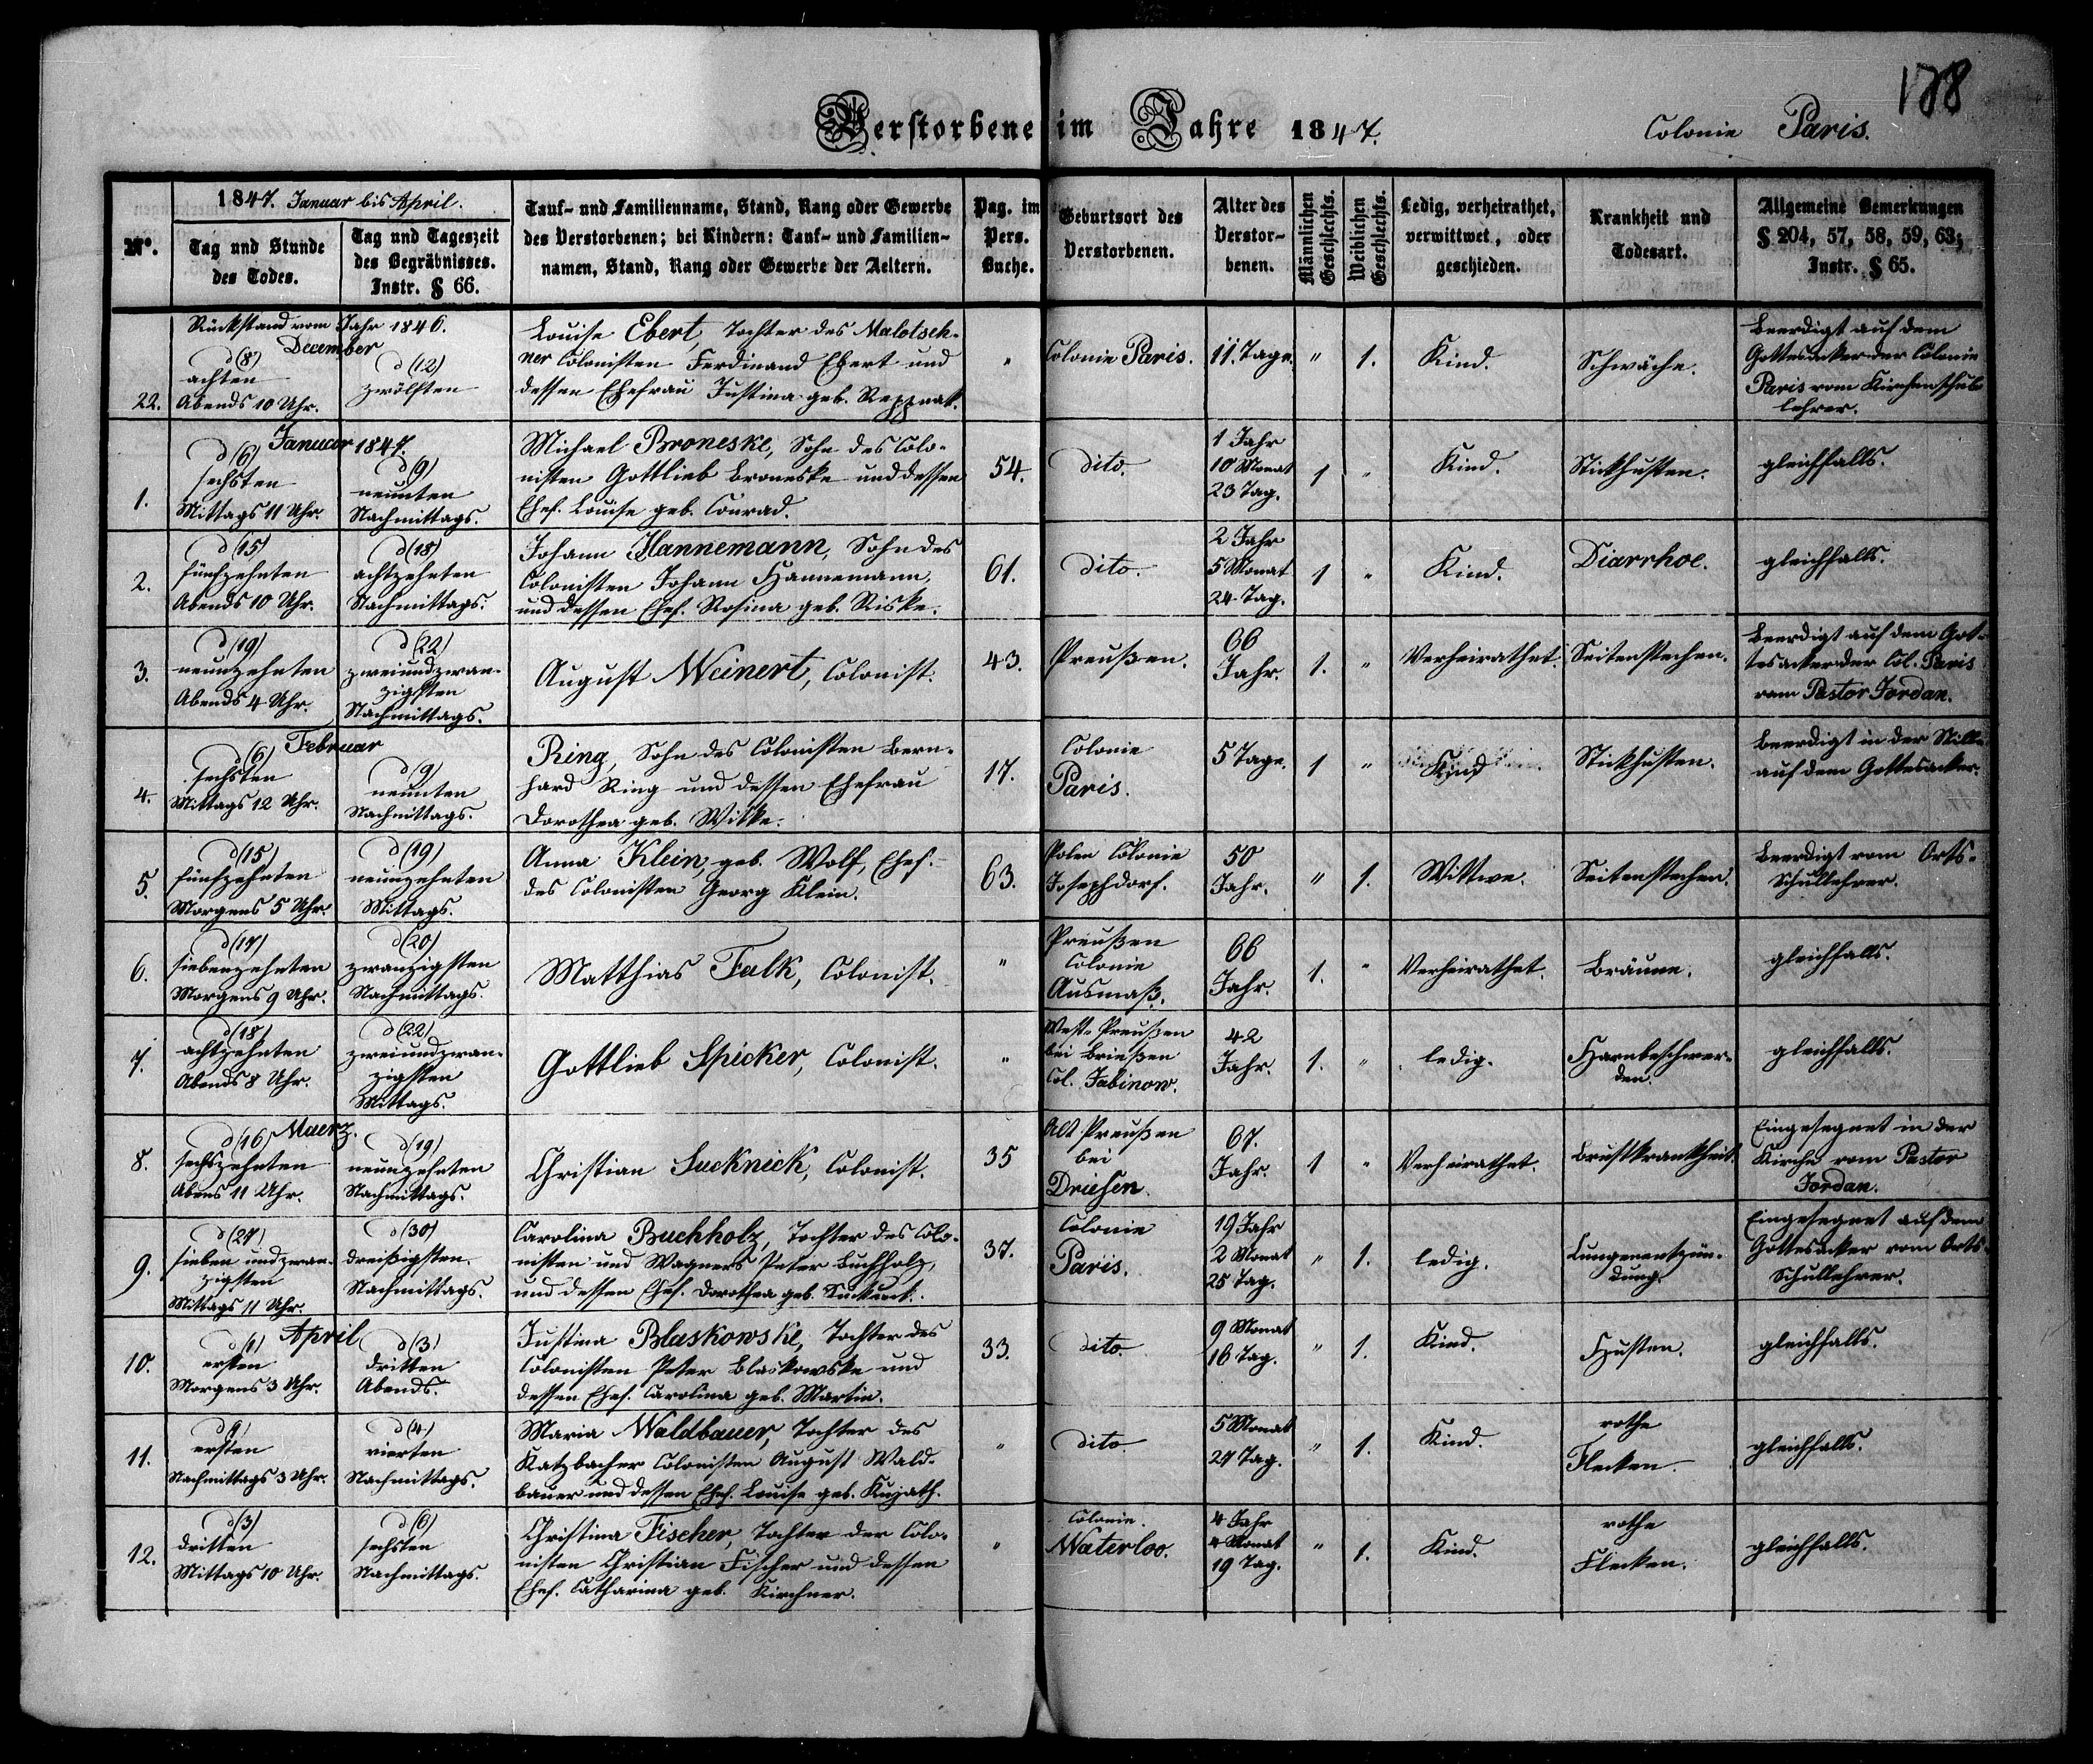 188
Verstorbene im Jahre 1847.
Colonie Paris.
No.
1847. Januar bis April.
Tag und Stunde
des Todes.
Tag und Tageszeit
des Begräbnisses.
Instr. § 66.
Tauf- und Familienname, Stand, Rang oder Gewerbe
des Verstorbenen; bei Kindern: Tauf- und Familien-
namen, Stand, Rang oder Gewerbe der Aeltern.
Pag. im
Pers.
Buche.
Geburtsort des
Verstorbenen.
Alter des
Verstor-
benen.
Männlichen
Geschlechts.
Weiblichen
Geschlechts.
Ledig, verheirathet,
verwittwet, oder
geschieden.
Krankheit und
Todesart.
Allgemeine Bemerkungen
§ 204, 57, 58, 59, 63;
Instr. § 65.
Rückstand vom Jahr 1846.
December
22.
d (8)
achten
Abends 10 Uhr.
d (12)
zwölften
Louise Ebert, Tochter des Malotsch-
ner Colonisten Ferdinand Ebert und
dessen Ehefrau Justina geb.
"
Colonie Paris.
11. Tage.
"
1.
Kind.
Schwäche.
Beerdigt auf dem
Gottesacker der Colonie
Paris vom Kirchenschul-
lehrer.
Januar 1847.
1.
d (6)
sechsten
Mittags 11 Uhr.
d (9)
neunten
Nachmittags.
Michael Broneske, Sohn des Colo-
nisten Gottlieb Broneske und dessen
Ehef. Louise geb. Conrad.
54.
dito.
1 Jahr
10 Monat
23 Tag.
1
"
Kind.
Stickhusten.
gleichfalls.
2.
d (15)
fünfzehnten
Abends 10 Uhr.
d (18)
achtzehnten
Nachmittags.
Johann Hannemann, Sohn des
Colonisten Johann Hannemann,
und dessen Ehef. Rosina geb. Riske.
61.
dito.
2 Jahr
5 Monat
24 Tag.
1
"
Kind.
Diarrhoe.
gleichfalls.
3.
d (19)
neunzehnten
Abends 4 Uhr.
d (22)
zweiundzwan-
zigsten
Nachmittags.
August Weinert, Colonist.
43.
Preußen.
66
Jahr.
1.
"
Verheirathet.
Seitenstechen.
Beerdigt auf dem Got-
tesacker der Col. Paris
vom Pastor Jordan.
Februar
4.
d (6)
sechsten
Mittags 12 Uhr.
d (9)
neunten
Nachmittags.
Ring, Sohn des Colonisten Bern-
hard Ring und dessen Ehefrau
Dorothea geb. Witke.
17.
Colonie
Paris.
5 Tage.
1
"
Kind
Stickhusten.
Beerdigt in der Stille
auf dem Gottesacker.
5.
d (15)
fünfzehnten
Morgens 5 Uhr.
d (19)
neunzehnten
Mittags.
Anna Klein, geb. Wolf, Ehef.
des Colonisten Georg Klein.
63.
Polen Colonie
Josephdorf.
50
Jahr.
"
1.
Wittwe.
Seitenstechen.
Beerdigt vom Orts-
Schullehrer.
6.
d (17)
siebenzehnten
Morgens 9 Uhr.
d (20)
zwanzigsten
Nachmittags.
Matthias Falk, Colonist.
"
Preußen
Colonie
Ausmaß.
66
Jahr.
1.
"
Verheirathet.
Bräune.
gleichfalls.
7.
d (18)
achtzehnten
Abends 8 Uhr.
d (22)
zweiundzwan-
zigsten
Mittags.
Gottlieb Spicker, Colonist.
"
West-Preußen
bei Brießen
Col. Jabinow.
42
Jahr.
1.
"
ledig.
Harnbeschwer-
den.
gleichfalls.
Maerz.
8.
d (16)
sechszehnten
Abens 11 Uhr.
d (19)
neunzehnten
Nachmittags.
Christian Sucknick, Colonist.
35
Alt Preußen
bei
Driesen.
67.
Jahr.
1
"
Verheirathet.
Brustkrankheit.
Eingesegnet in der
Kirche vom Pastor
Jordan.
9.
d (27)
sieben undzwan-
zigsten
Mittags 11 Uhr.
d (30)
dreißigsten.
Nachmittags.
Carolina Buchholz, Tochter des Colo-
nisten und Wagners Peter Buchholz,
und dessen Ehef. Dorothea geb.
37.
Colonie
Paris.
19 Jahr
2 Monat
25 Tag.
"
1.
ledig.
Lungenentzün-
dung.
Eingesegnet auf dem
Gottesacker vom Orts-
Schullehrer.
April
10.
d (1)
ersten
Morgens 3 Uhr.
d (3)
dritten
Abends.
Justina Blaskowske, Tochter des
Colonisten Peter Blaskowske und
dessen Ehef. Carolina geb. Martin.
33.
dito.
9 Monat
16 Tag.
"
1.
Kind.
Husten.
gleichfalls.
11.
d (1)
ersten
Nachmittags 3 Uhr.
d (4)
vierten
Nachmittags.
Maria Waldbauer, Tochter des
Katzbacher Colonisten August Wald-
bauer und dessen Ehef. Louise geb. Kujath.
"
dito.
5 Monat
27 Tag.
"
1.
Kind.
rothe
Flecken.
gleichfalls.
12.
d (3)
dritten
Mittags 10 Uhr.
d (6)
sechsten
Nachmittags.
Christina Fischer, Tochter der Colo-
nisten Christian Fischer und dessen
Ehef. Catharina geb. Kirchner.
"
Colonie.
Waterloo.
4 Jahr
4 Monat
19 Tag.
"
1.
Kind.
rothe
Flecken.
gleichfalls.